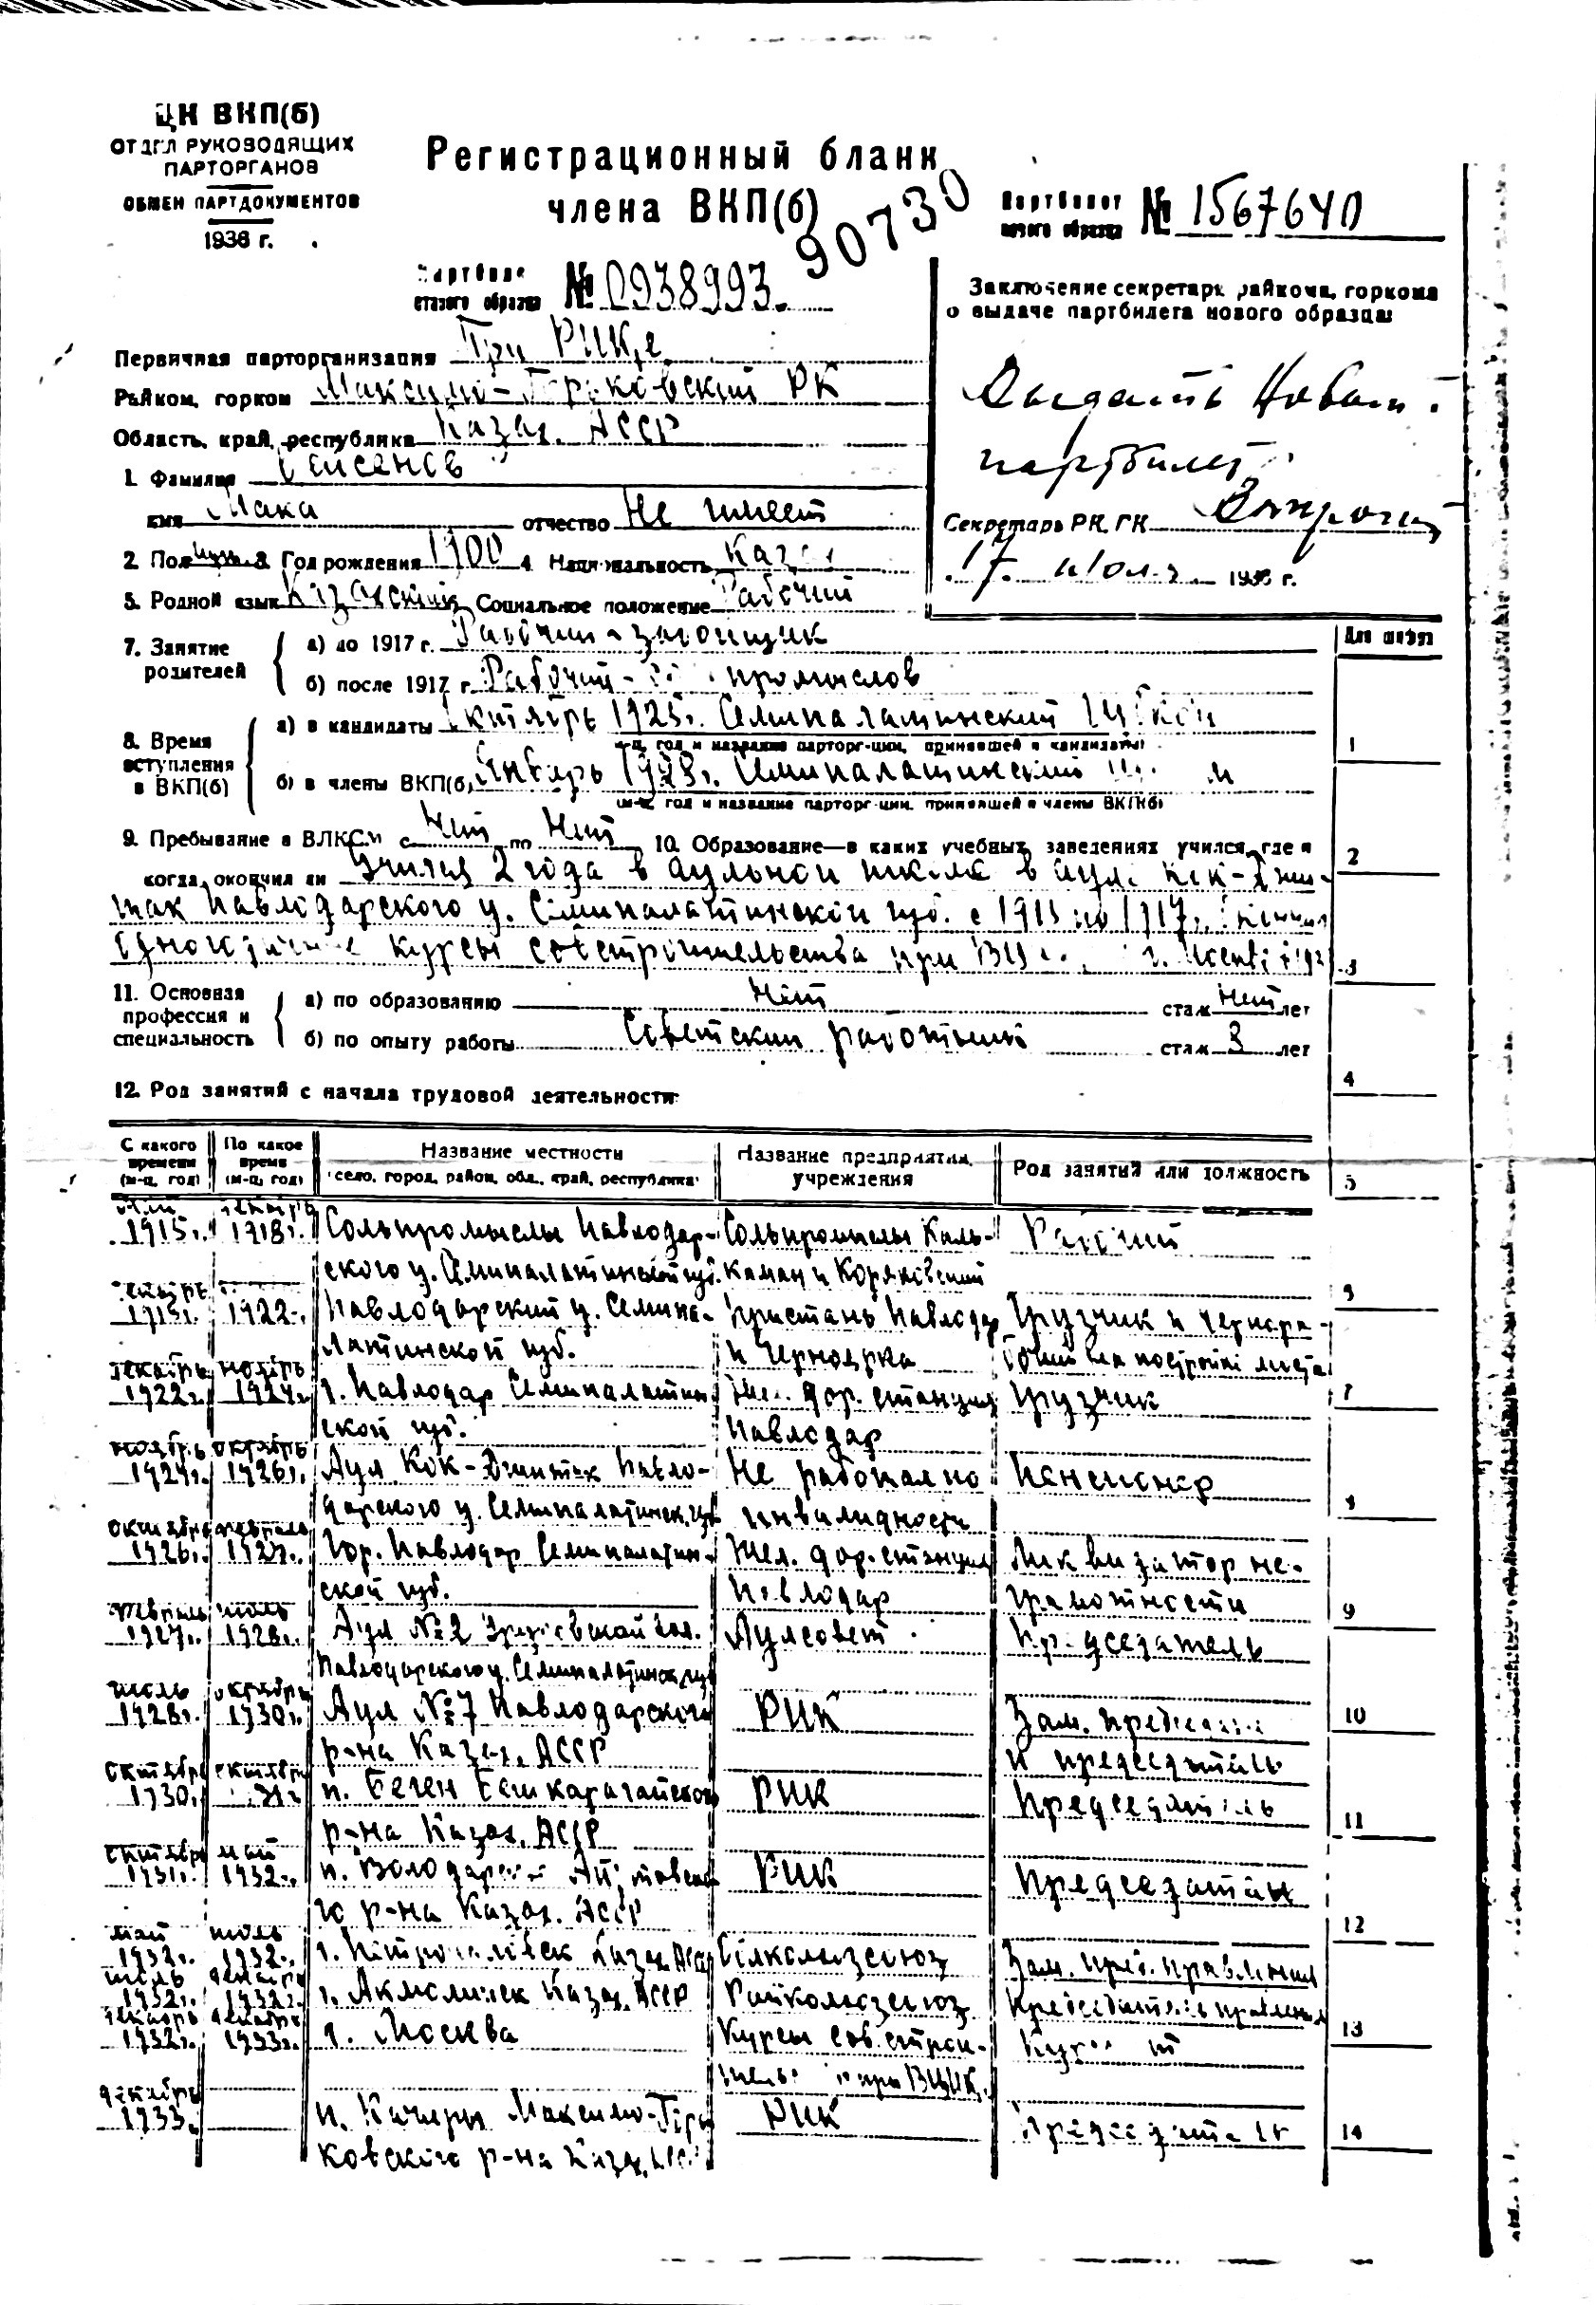 ЦК ВКП(б)
ОТДЕЛ РУКОВОДЯЩИХ
ПАРТОРГАНОВ
ОБМЕН ПАРТДОКУМЕНТОВ
1936 г.
Регистрационный бланк
члена ВКП(б)
90730
Партбилет
нового образца № 1567640
Партбилет
старого образца № 0938993.
Заключение секретаря райкома, горкома
о выдаче партбилета нового образца:
Выдать новый
партбилет
Секретарь РК, ГК
17. июля 1936 г.
Первичная парторганизация При РИКе
Райком, горком Максимо-Горьковский РК
Область, край, республика Казах. АССР
1. Фамилия Сейсенов
имя Мака отчество Не имеет
2. Пол муж. 3. Год рождения 1900 4. Национальность Казах
5. Родной язык Казахский 6. Социальное положение Рабочий
7. Занятие
родителей
а) до 1917 г. Рабочий
б) после 1917 г. Рабочий промыслов
8. Время
вступления
в ВКП(б)
а) в кандидаты Октябрь 1925г. Семипалатинский Губком
м-ц, год и название парторг-ции, принявшей в кандидаты
б) в члены ВКП(б) Январь 1928г. Семипалатинский
(м-ц, год и название парторг-ции, принявшей в члены ВКП(б)
9. Пребывание в ВЛКСМ с Нет по Нет 10. Образование—в каких учебных заведениях учился, где и
когда окончил ли Учился 2 года в аульной школе в ауле Кок-Джи-
так Павлодарского у. Семипалатинской губ. с 1915 по 1917г. Окончил
курсы совстроительства при
11. Основная
профессия и
специальность
а) по образованию Нет стаж Нет лет
б) по опыту работы Советский работник стаж 3 лет
12. Род занятий с начала трудовой деятельности
Для шифра
С какого
времени
(м-ц, год)
По какое
время
(м-ц, год)
Название местности
село, город, район, обл., край, республика
Название предприятия,
учреждения
Род занятий или должность
1915г. декабрь 1918г. Сольпромыслы Павлодар- Сольпромыслы Каль- Рабочий
ского у. Семипалатинской губ. каман и Коряковский
декабрь 1918г. 1922г. Павлодарский у. Семипа- Пристань Павлодар Грузчик и чернора-
латинской губ. и Черноярка бочий на постройке моста
декабрь 1922г. ноябрь 1924г. г. Павлодар Семипалатин- Жел. дор. станция Грузчик
ской губ. Павлодар
ноябрь 1924г. октябрь 1926г. Аул Кок-Джитак Павло- Не работал по Пенсионер
дарского у. Семипалатинск. губ инвалидности
октябрь 1926г. февраль 1927г. Гор. Павлодар Семипалатин- Жел. дор. станция Ликвизатор не-
ской губ. Павлодар грамотности
февраль 1927г. июль 1928г. Аул №2 вол. Аулсовет Председатель
Павлодарского у. Семипалатинск. губ
июль 1928г. октябрь 1930г. Аул №7 Павлодарского РИК Зам. председат
р-на Казах. АССР и председатель
октябрь 1930г. октябрь 31г. п. Беген Бешкарагайского РИК Председатель
р-на Казах. АССР
октябрь 1931г. май 1932г. п. Володарский РИК Председатель
го р-на Казах. АССР
май 1932г. июль 1932г. г. Петропавловск Казах. АССР Зам. пред. правления
июль 1932г. декабрь 1932г. г. Акмолинск Казах. АССР Райколхозсоюз Председатель правления
декабрь 1932г. декабрь 1933г. г. Москва Курсы сов. строи-
тельс при ВЦИК.
декабрь 1933г. п. Качиры Максимо-Горь- РИК Председатель
ковского р-на Казах. АССР
1
2
3
4
5
6
7
8
9
10
11
12
13
14